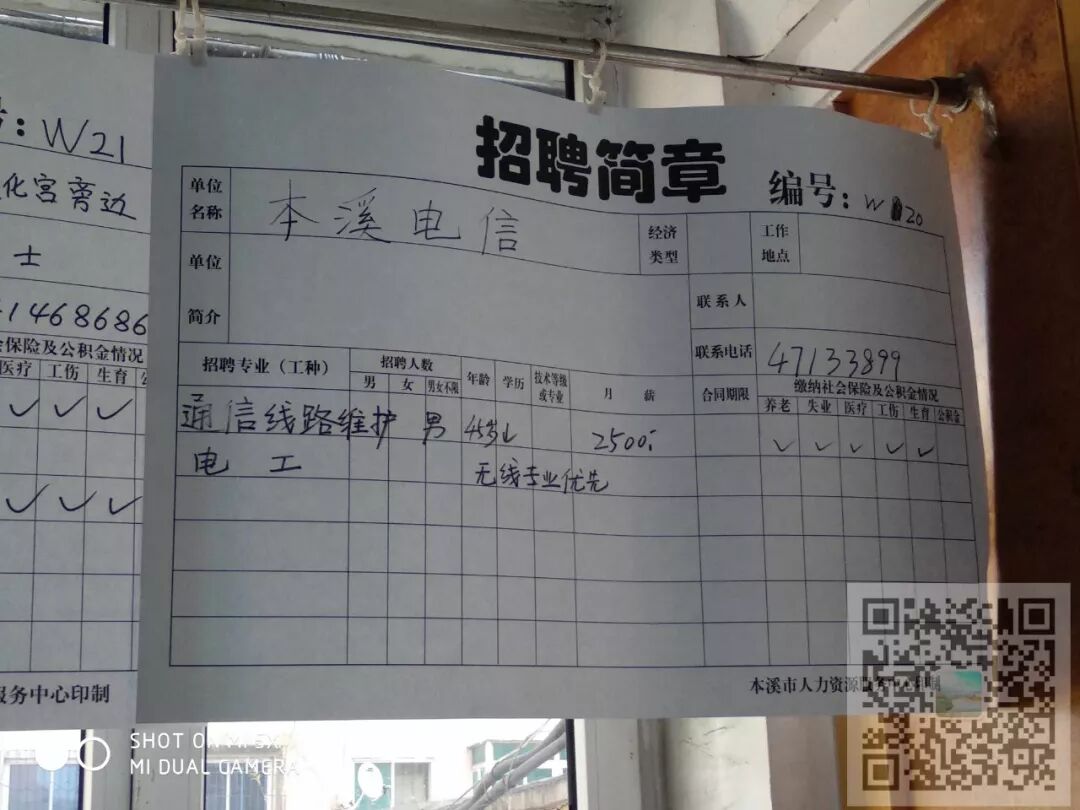 号：W21
化宫旁边
士
1468686
会保险及公积金情况
医疗 工伤 生育
✓ ✓ ✓
✓ ✓ ✓
服务中心印制
招聘简章
编号：W 20
单位名称 本溪电信 经济类型 工作地点
单位简介 联系人
联系电话 47133899
招聘专业（工种） 招聘人数 年龄 学历 技术等级或专业 月薪 合同期限 缴纳社会保险及公积金情况
男 女 男女不限 养老 失业 医疗 工伤 生育 公积金
通信线路维护 男 45岁↓ 2500 ✓ ✓ ✓ ✓ ✓
电工 无线专业优先
本溪市人力资源服务中心印制
SHOT ON MI 5X
MI DUAL CAMERA